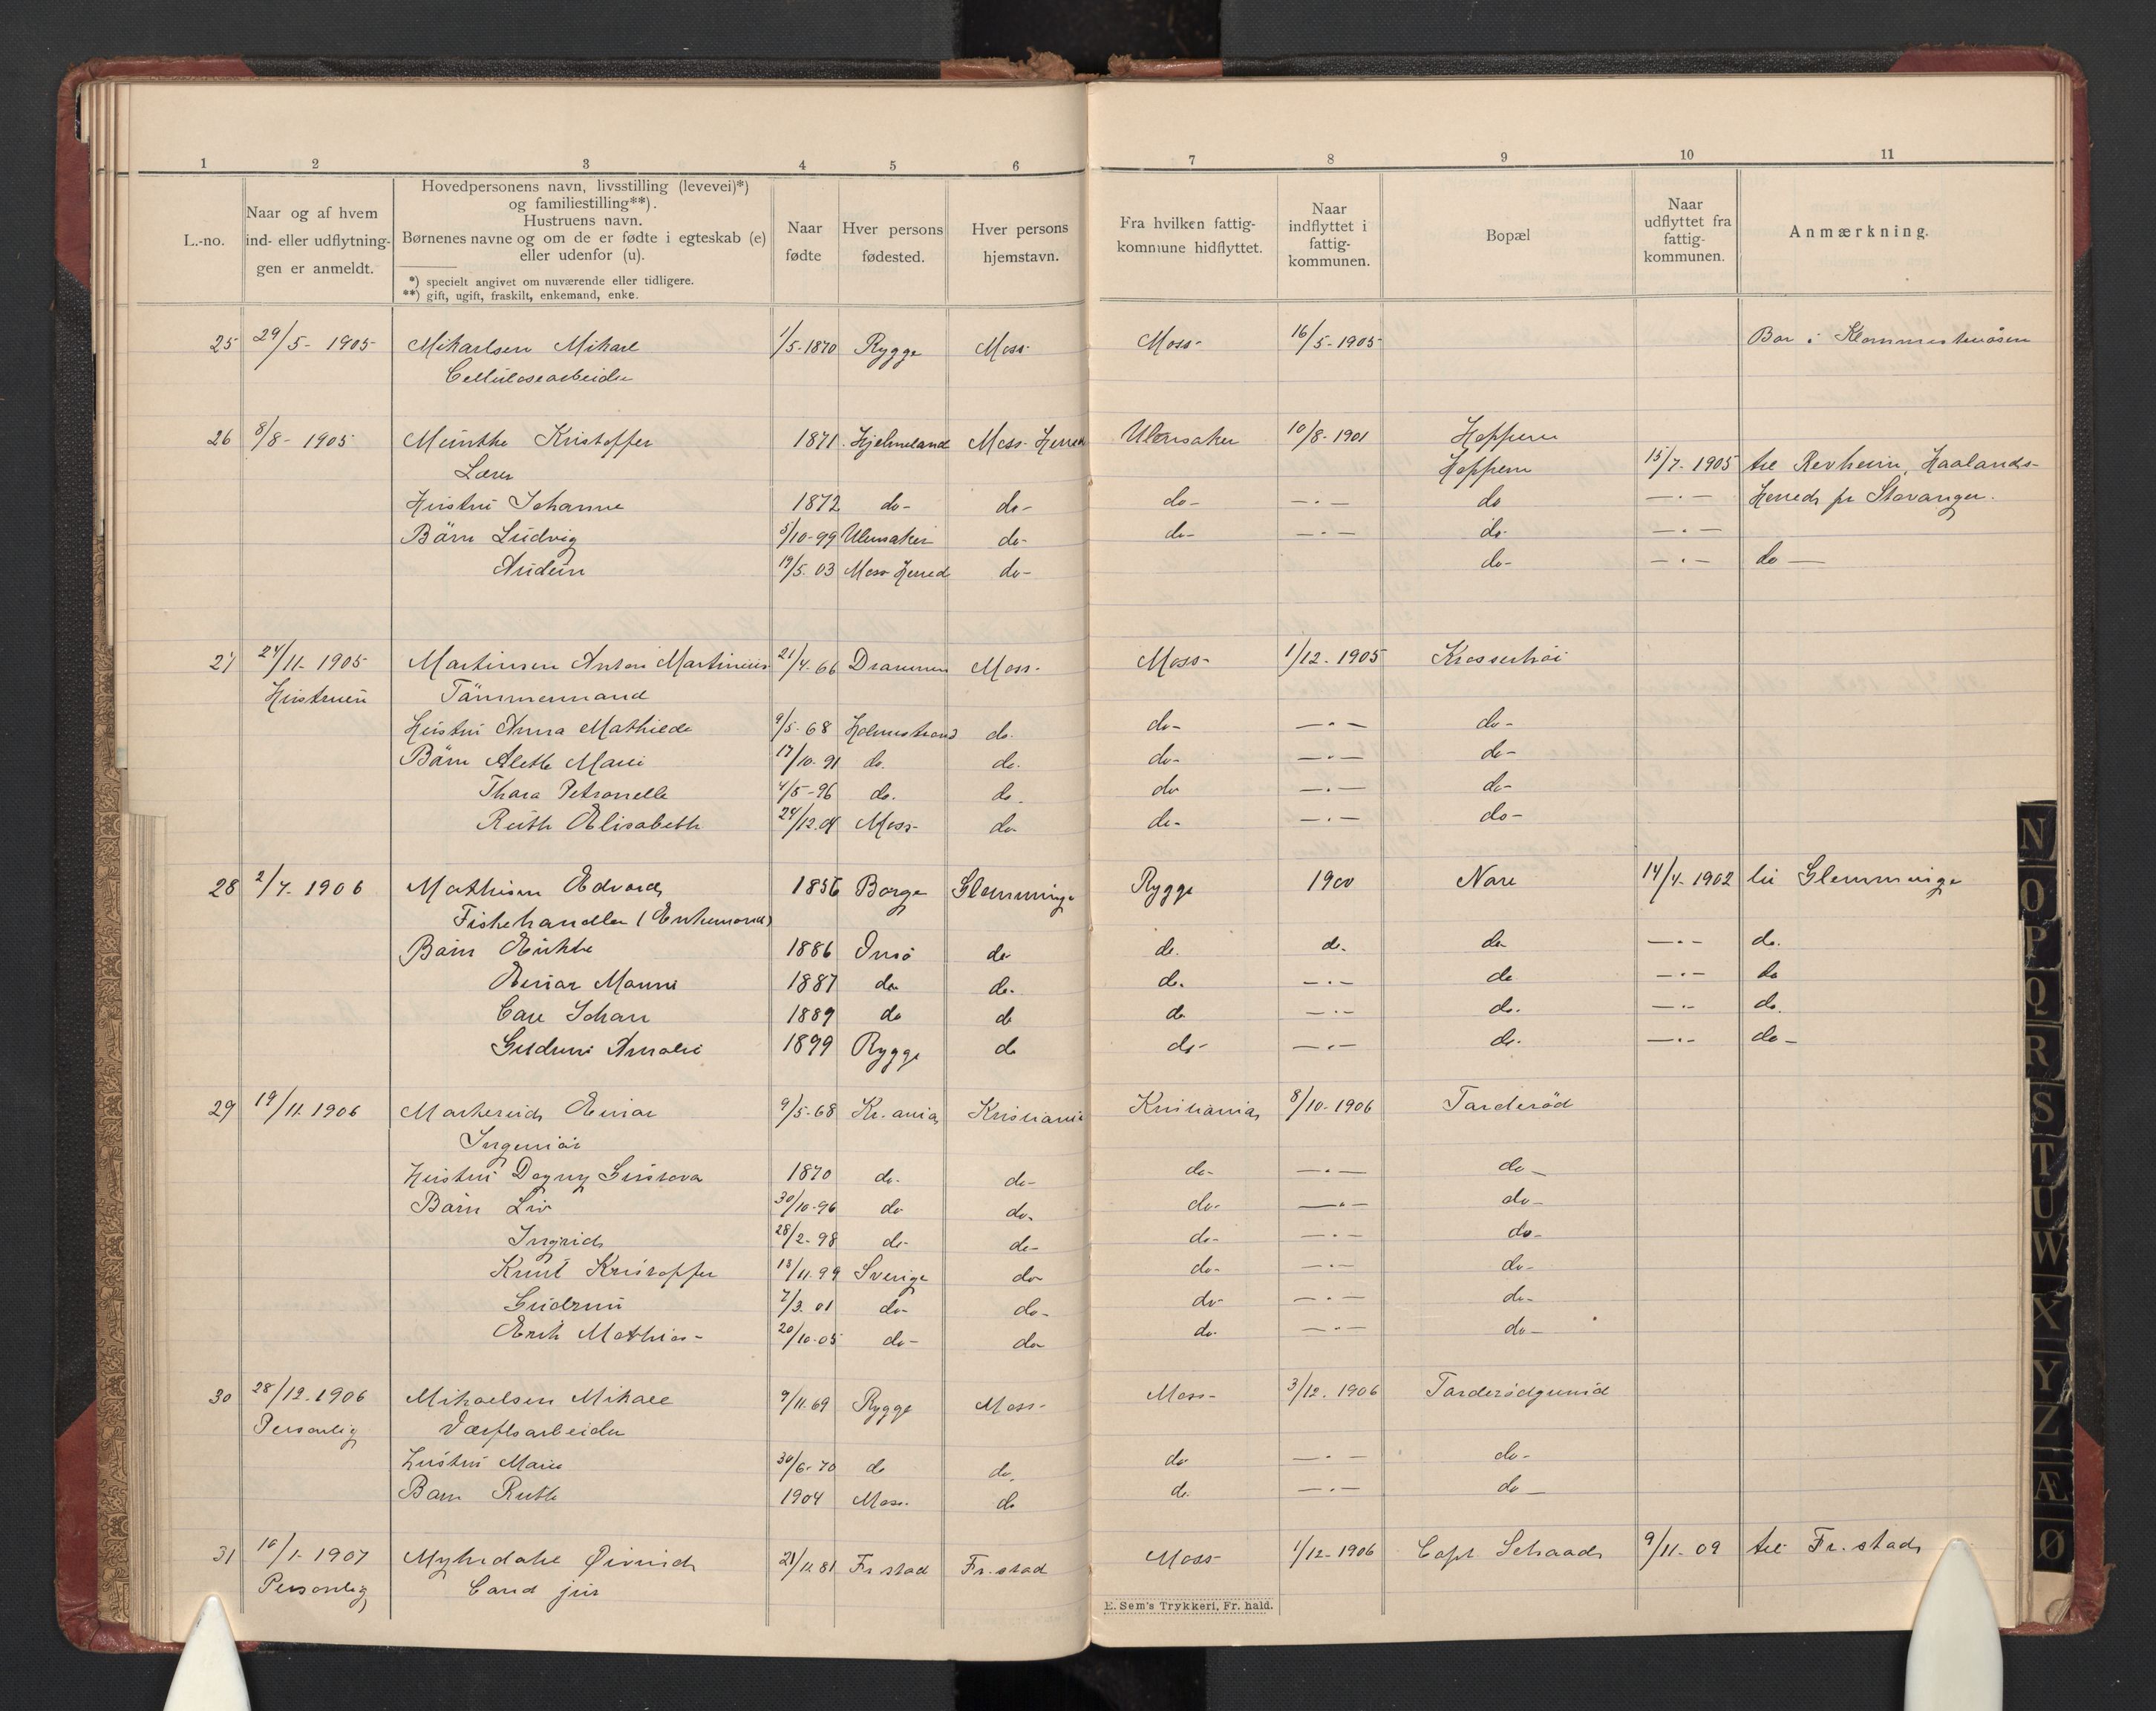 1 2 3 4 5 6 7 8 9 10 11
L.-no.
Naar og af hvem ind- eller udflytningen er anmeldt.
Hovedpersonens navn, livsstilling (levevei)*)
og familiestilling**).
Hustruens navn.
Børnenes navne og om de er fødte i egteskab (e)
eller udenfor (u).
*) specielt angivet om nuværende eller tidligere.
**) gift, ugift, fraskilt, enkemand, enke.
Naar fødte
Hver persons fødested.
Hver persons hjemstavn.
Fra hvilken fattigkommune hidflyttet.
Naar indflyttet i fattigkommunen.
Bopæl
Naar udflyttet fra fattigkommunen.
Anmærkning.
25 29/5- 1905 Mikaelsen Mikael 1/5-1870 Rygge Moss Moss- 16/5-1905 Bor i
Cellulosearbeider
26 8/8- 1905 Münthe Kristoffer 1871 Hjelmeland Moss Herred Ulensaker 10/8-1901 Hoppern
Lærer Hoppern 15/7-1905 til Revheim, Haalands-
Hustru Johanne 1872 do- do- do- —·— do —·— Herred pr Stavanger.
Børn Ludvig 5/10-99 Ulensaker do- do- —·— do- —·—
Audun 19/5.03 Moss Herred do- do- —·— do —
27 24/11-1905 Martinsen Anton Martinius 21/4.66 Drammen Moss- Moss- 1/12-1905 Krosserhøi
Hustruen Tømmermand
Hustru Anna Mathilde 9/5-68 Holmestrand do. do- —·— do-
Børn Alette Marie 17/10-91 do. do. do- —·— do-
Thora Petronelle 4/5-96 do. do. do —·— do-
Ruth Elisabeth 24/12.04 Moss- do- do- —·— do-
28 2/7-1906 Mathisen Edvard 1856 Borge Glemminge Rygge 1900 Nare 14/4-1902 til Glemminge
Fiskehandler (Enkemand)
Børn 1886 Onsø do do. do. do —·— do.
Einar 1887 do do. do. —·— do —·— do
Carl Johan 1889 do do do —·— do. —·— do.
Gudrun Amalie 1899 Rygge do do- —·— do. —·— do-
29 19/11.1906 Einar 9/5-68 Kr.ania Kristiania Kristiania 8/10-1906 Tarderød
Ingeniør
Hustru Dagny Gustava 1870 do. do- do- —·— do-
Børn Liv 30/10-96 do do- do- —·— do-
Ingrid 28/2-98 do- do- do- —·— do-
Knut Kristoffer 18/11.99 Sverige do do- —·— do-
Gudrun 7/3.01 do- do- do- —·— do-
Erik Mathias- 20/10-05 do- do do- —·— do-
30 28/12-1906 Mikaelsen Mikael 9/11.69 Rygge Moss- Moss- 3/12.1906 Tarderødgrund
Personlig Værftsarbeider
Hustru Marie 30/6-70 do do. do —·— do-
Barn Ruth 1904 Moss. do do. —·— do-
31 10/1-1907 Myhrdahl Øivind 21/12.81 Fr.stad Fr.stad Moss- 1/12-1906 Capt Schaad 9/11-09 til Fr.stad
Personlig Cand jur
E. Sem's Trykkeri, Fr.hald.
N
O
P
Q
R
S
T
U
W
X
Y
Z
Æ
Ø